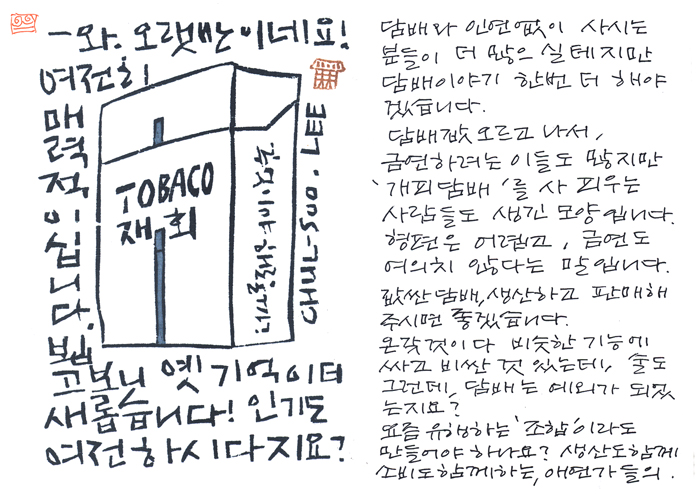 –와. 오랫만이네요!
여전히
매력적이십니다. 뵙
고보니 옛 기억이 더
새롭습니다! 인기도
여전하시다지요?
TOBACO
재회
CHUL-SOO. LEE
담배와 인연없이 사시는
분들이 더 많으실테지만
담배이야기 한번 더 해야
겠습니다.
담배값 오르고 나서,
금연하려는 이들도 많지만
'개피담배'를 사 피우는
사람들도 생긴 모양입니다.
형편은 어렵고, 금연도
여의치 않다는 말입니다.
값싼담배, 생산하고 판매해
주시면 좋겠습니다.
온갖것이 다 비슷한 기능에
싸고 비싼 것 있는데, 술도
그런데, 담배는 예외가 되겠
는지요?
요즘 유행하는 '조합'이라도
만들어야 하나요? 생산도함께
소비도함께하는, 애연가들의.